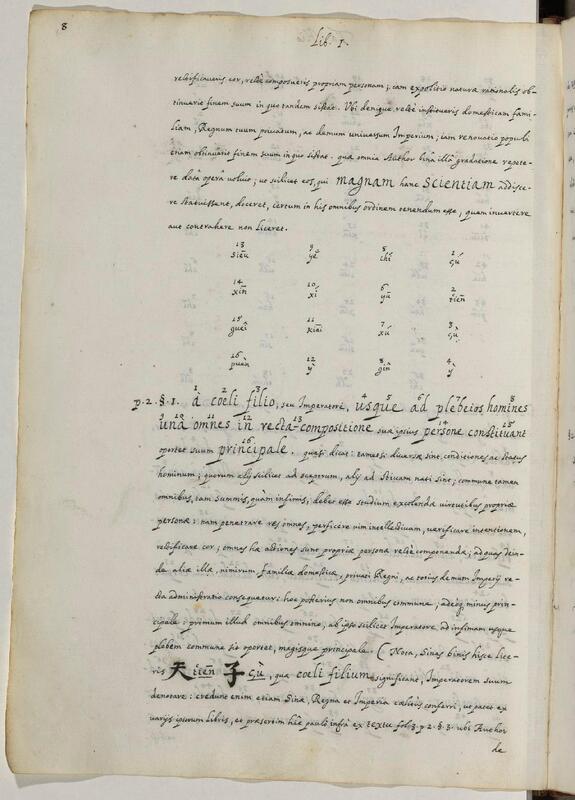 8
Lib. 1.
rectificaveris cor, rectè composueris propriam personam; iam expolitio naturæ rationalis ob-
tinuerit finem suum in quo tandem sistat. Ubi denique rectè institueris domesticam fami-
liam, Regnum tuum privatum, ac demum universum Imperium; iam renovatio populi
etiam obtinuerit finem suum in quo sistat. quæ omnia Author binâ illâ gradatione repete-
re datâ operâ voluit; ut scilicet eos, qui magnam hanc Scientiam addisce-
re statuissent, doceret, certum in his omnibus ordinem tenendum esse, quem invertere
aut contrahere non liceret.
13 9 5 1
sieū yě chí çú
14 10 6 2
xīn xí yū tiēn
15 11 7 3
guéi kiāi xú çù
16 12 8 4
puèn ỳ gîn ỳ
p. 2. §. 1. à cœli filio, seu Imperatori, usque ad plebeios homines
1 2 3 4 5 6 7 8
unà omnes in recta compositione suæ ipsius personæ constituant
9 10 12 13 14 15
oportet suum principale. quasi dicat: tametsi diversæ sint conditiones ac status
16
hominum; quorum alij scilicet ad sceptrum, alij ad stivam nati sint; commune tamen
omnibus, tam summis, quàm infimis; debet esse studium excolendæ virtutibus propriæ
personæ: nam penetrare res omnes, perficere vim intellectivam, verificare intentionem,
rectificare cor; omnes hæ actiones sunt propriæ personæ rectè componendæ; ad quas dein-
de aliæ illæ, nimirum familiæ domesticæ, privati Regni, ac totius demum Imperij re-
cta administratio consequatur: hoc posterius non omnibus commune, adeoq; minus prin-
cipale: primum illud omnibus omnino, ab ipso scilicet Imperatore ad infimam usque
plebem commune sit oportet, magisque principale. (Nota, Sinas binis hisce lite-
ris 天 tiēn 子 çù, quæ cœli filium significant, Imperatorem suum
denotare: credunt enim etiam Sinæ, Regna et Imperia cælitus conferri, ut patet ex
varijs ipsorum libris, et præsertim hîc paulò infrà ex textu fol. 3. p. 2. §. 3. ubi Author
de